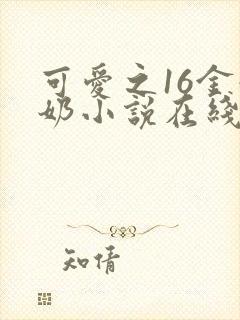 可愛之16金
奶小説在綫
知情